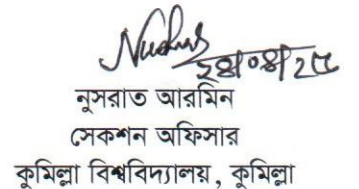 ২৪/০৪/২৫
নুসরাত আরমিন
সেকশন অফিসার
কুমিল্লা বিশ্ববিদ্যালয়, কুমিল্লা